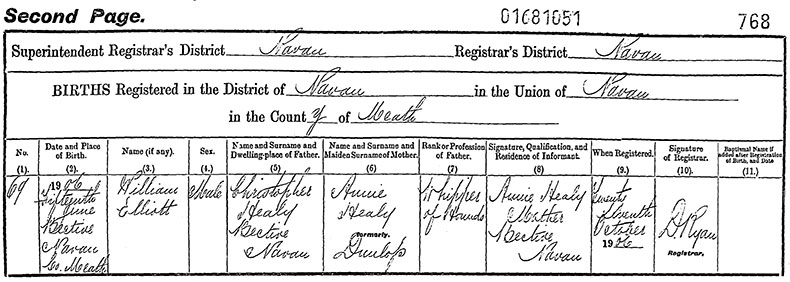 Second Page.
01681051
768
Superintendent Registrar's District Navan Registrar's District Navan
BIRTHS Registered in the District of Navan in the Union of Navan
in the County of Meath
No.
(1).
Date and Place
of Birth.
(2).
Name (if any).
(3.)
Sex.
(4.)
Name and Surname and
Dwelling-place of Father.
(5)
Name and Surname and
Maiden Surname of Mother.
(6)
Rank or Profession
of Father.
(7)
Signature, Qualification, and
Residence of Informant.
(8)
When Registered.
(9.)
Signature
of Registrar.
(10).
Baptismal Name if
added after Registration
of Birth, and Date
(11.)
69
1906
June
Bective
Navan
Co. Meath
William
Elliott
Male
Christopher
Healy
Bective
Navan
Annie
Healy
formerly.
Dunlop
Whipper
of Hounds
Annie Healy
Mother
Bective
Navan
Twenty
October
1906
D Ryan
Registrar.